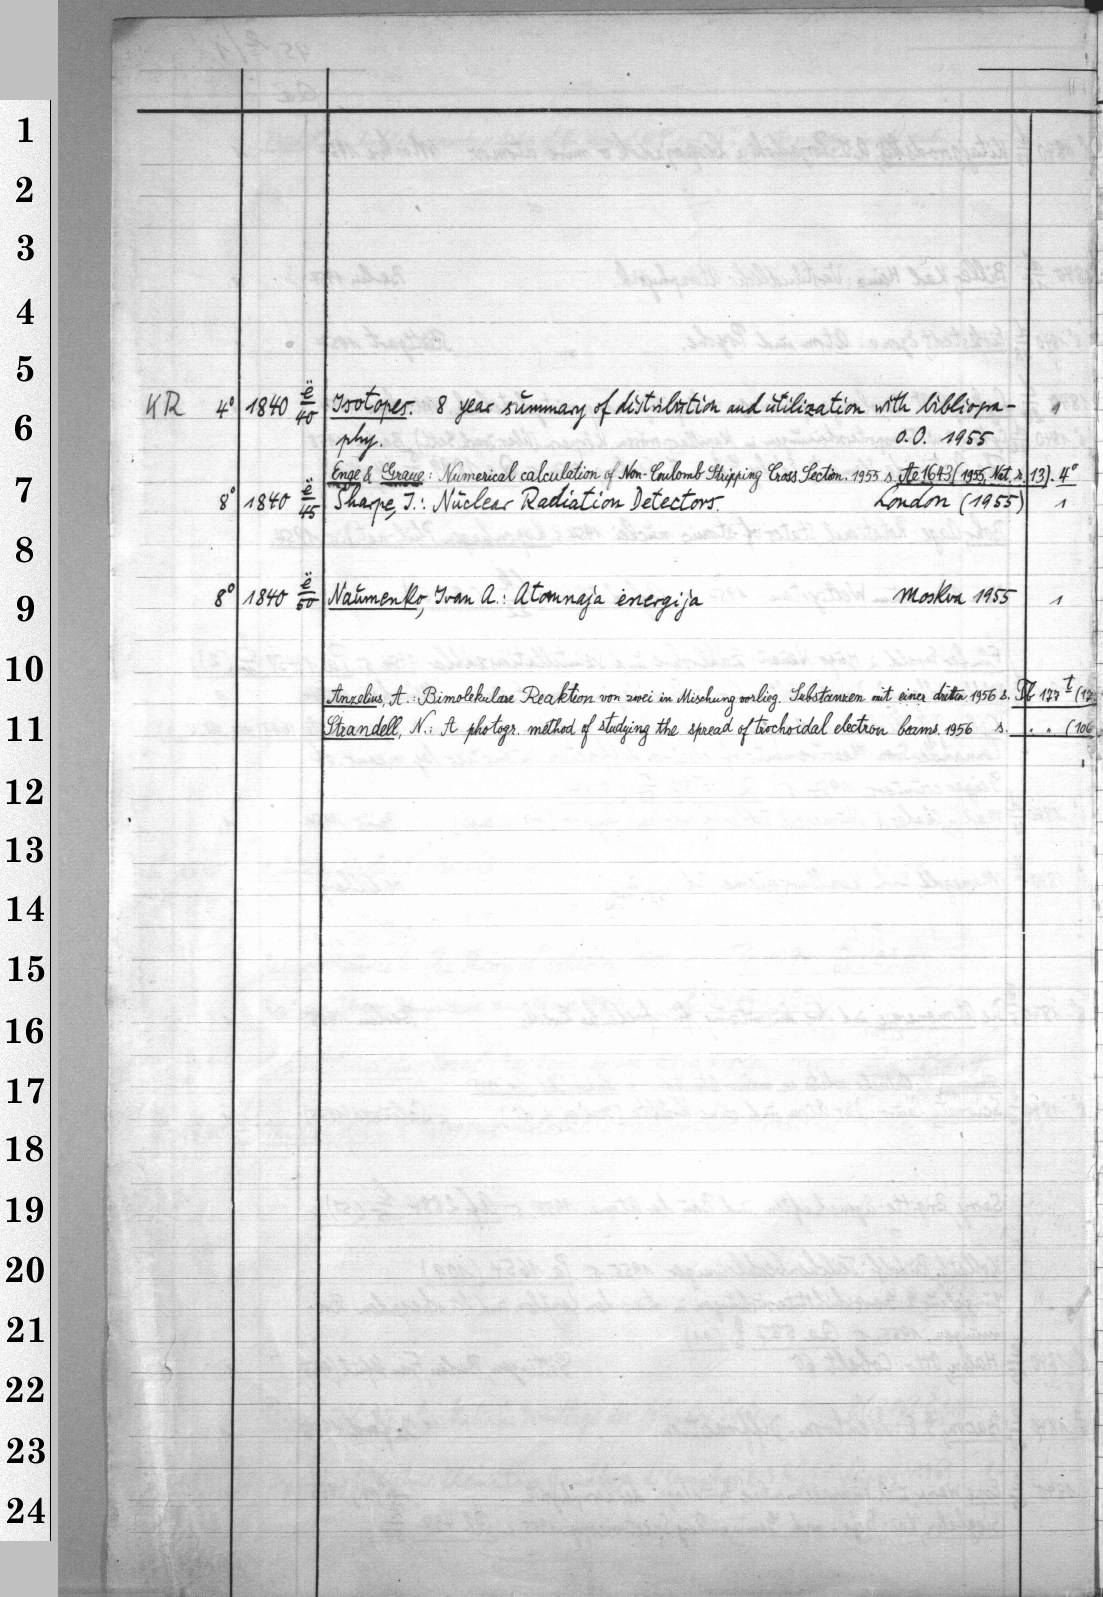 1
2
3
4
5
6
7
8
9
10
11
12
13
14
15
16
17
18
19
20
21
22
23
24
KR 4° 1840 ë/40 Isotopes. 8 year summary of distribution and utilization with bibliogra- 1
phy. o.O. 1955
Enge & Graue: Numerical calculation of Non-Coulomb Stripping Cross Section. 1955 s. Ae 1643 (1955, Nat. r. 13). 4°
8° 1840 ë/45 Sharpe, J.: Nuclear Radiation Detectors. London (1955) 1
8° 1840 ë/50 Naumenko, Ivan A.: Atomnaja energija Moskva 1955 1
Anzelius, A.: Bimolekulare Reaktion von zwei in Mischung vorlieg. Substanzen mit einer dritten 1956 s. Tb 127
Strandell, N.: A photogr. method of studying the spread of trochoidal electron beams. 1956 s. " " (106